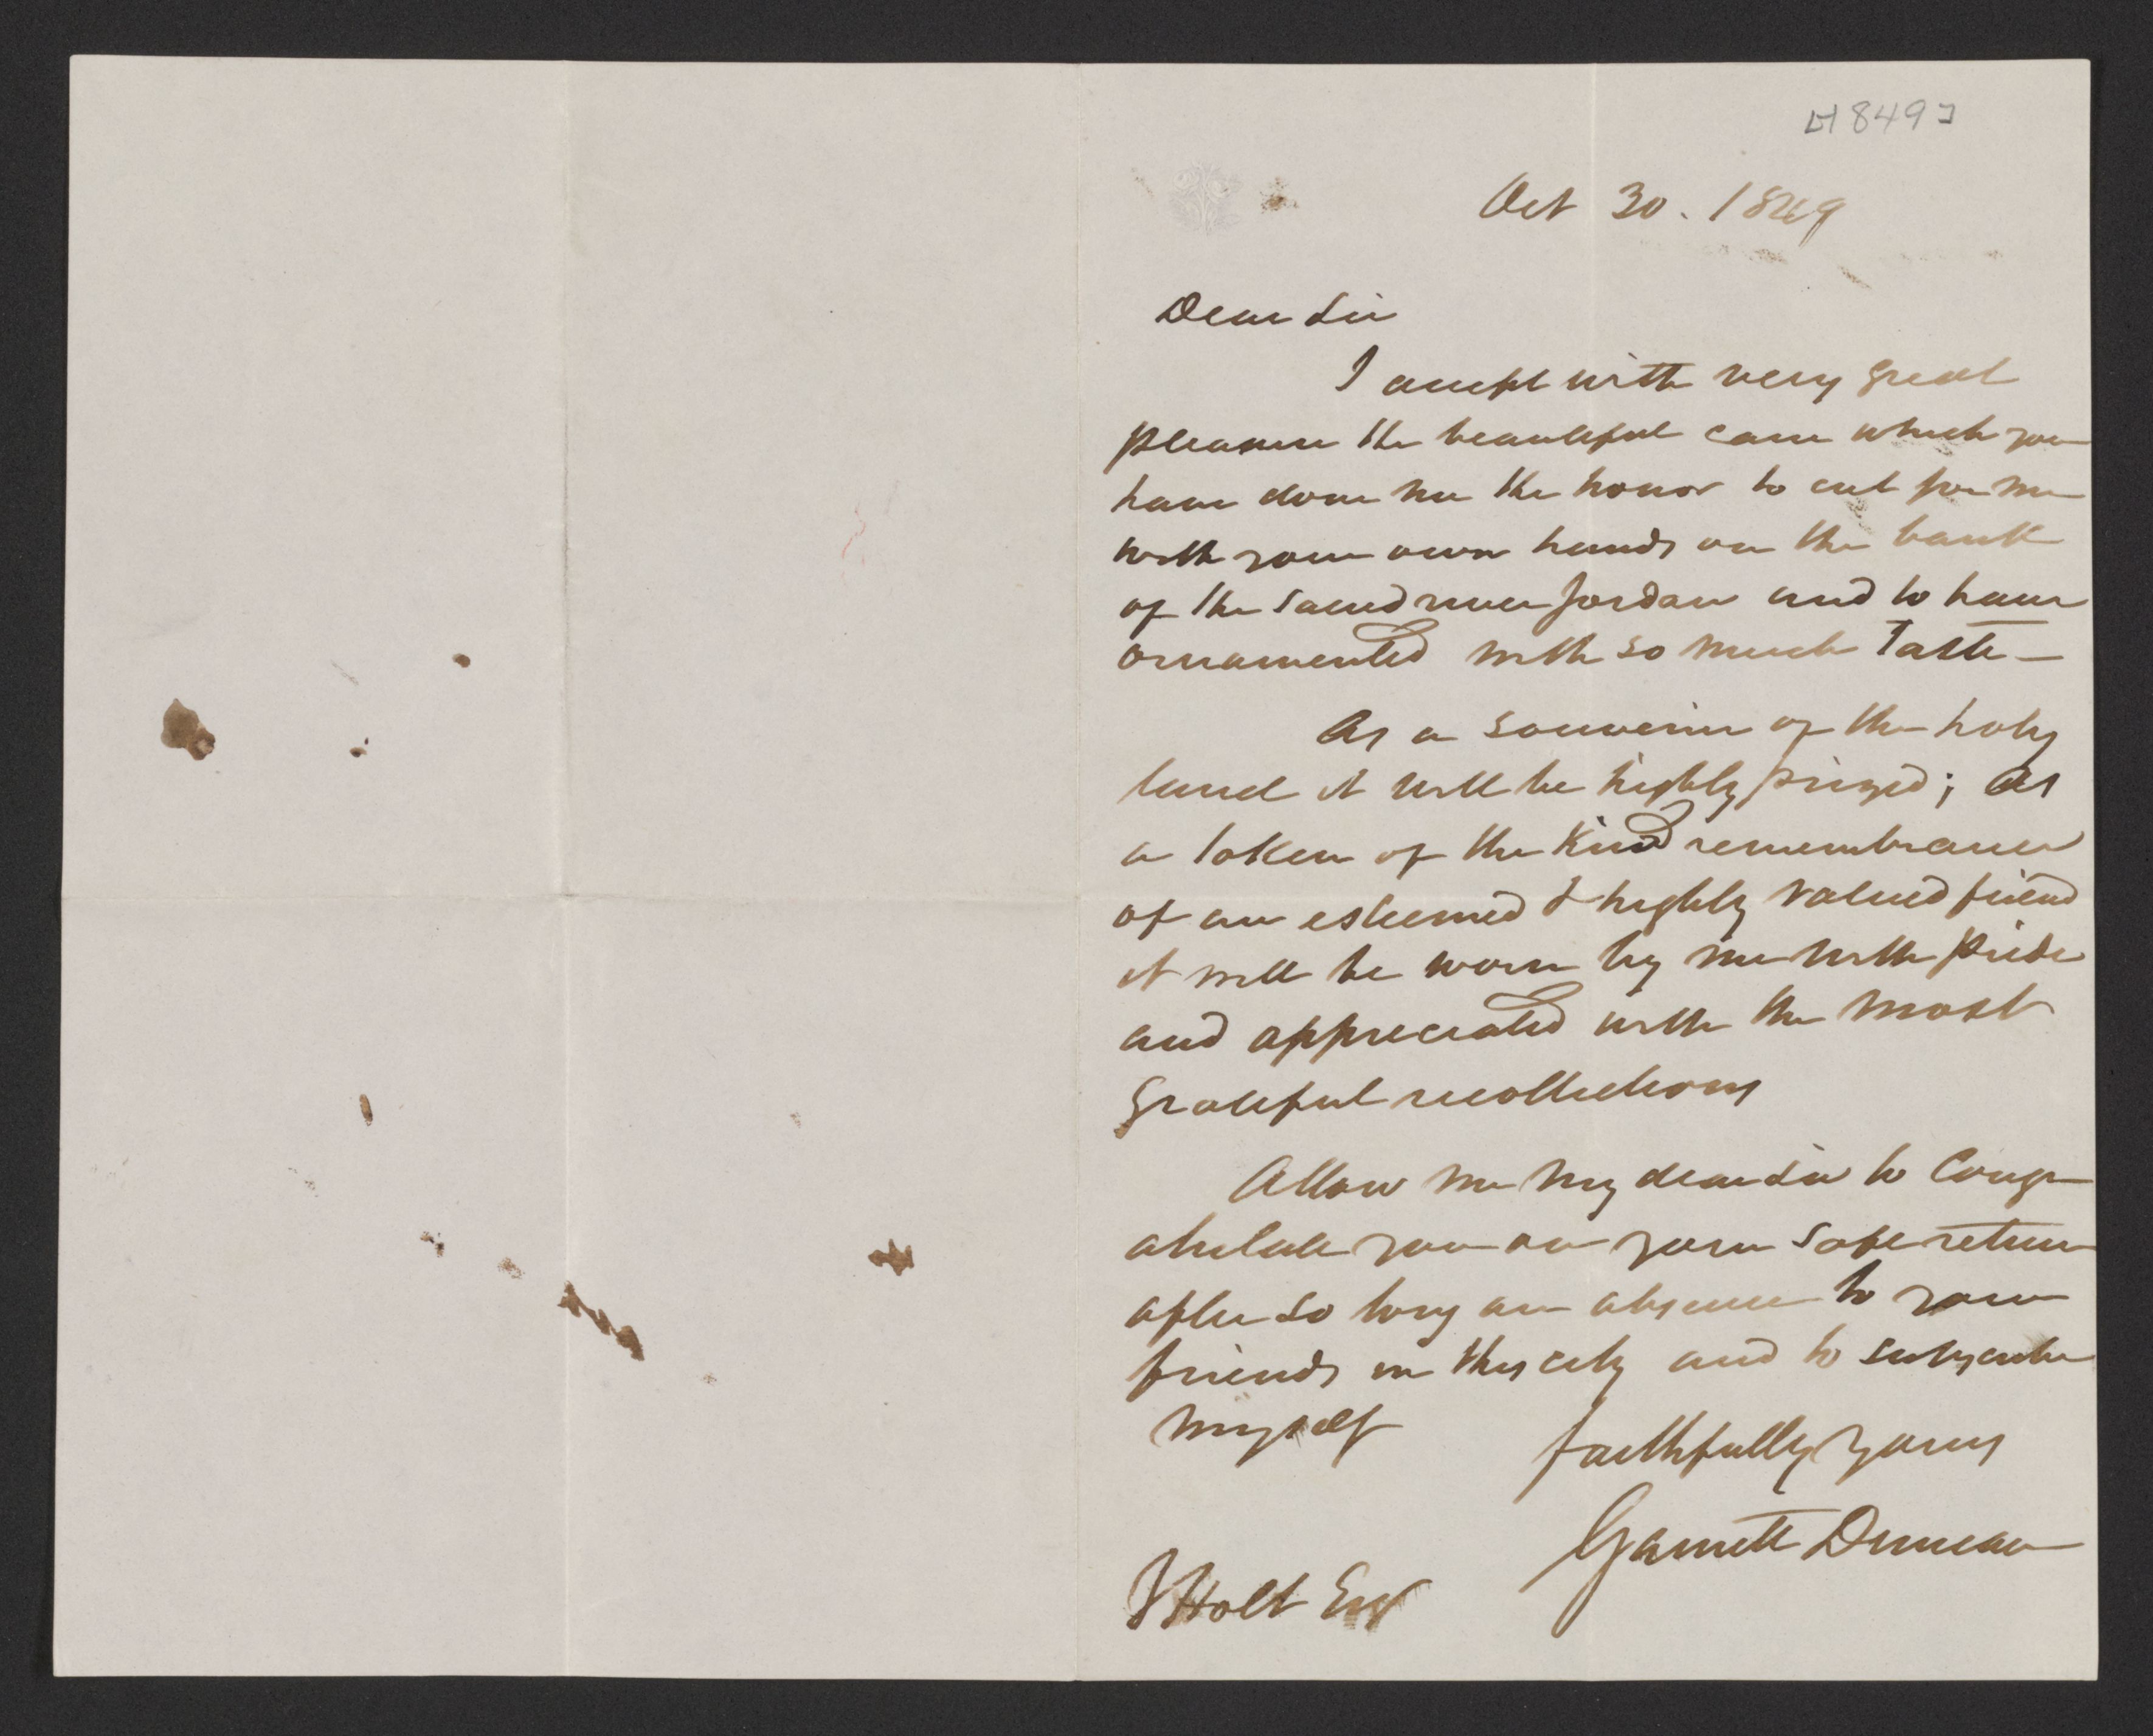 [1849]
Oct 30. 1849
Dear Sir
I accept with very great
pleasure the beautiful cane which you
have done me the honor to cut for me
with your own hands on the bank
of the sacred river Jordan and to have
ornamented with so much taste —
As a souvenir of the holy
land it will be highly prized; as
a token of the kind remembrance
of an esteemed & highly valued friend
it will be worn by me with pride
and appreciated with the most
grateful recollections
Allow me my dear Sir to Congr
atulate you on your safe return
after so long an absence to your
friends in this city and to subscribe
myself
faithfully yours
Garnett Duncan
J Holt Esq